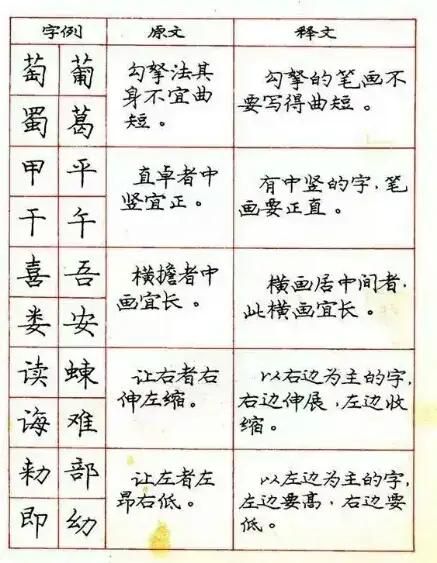 字例 原文 释文
萄 葡
蜀 葛
勾拏法其
身不宜曲
短。
勾拏的笔画不
要写得曲短。
甲 平
干 午
直卓者中
竖宜正。
有中竖的字,笔
画要正直。
喜 吾
娄 安
横担者中
画宜长。
横画居中间者,
此横画宜长。
读 蝀
诲 难
让右者右
伸左缩。
以右边为主的字,
右边伸展,左边收
缩。
勑 部
即 幼
让左者左
昂右低。
以左边为主的字,
左边要高,右边要
低。